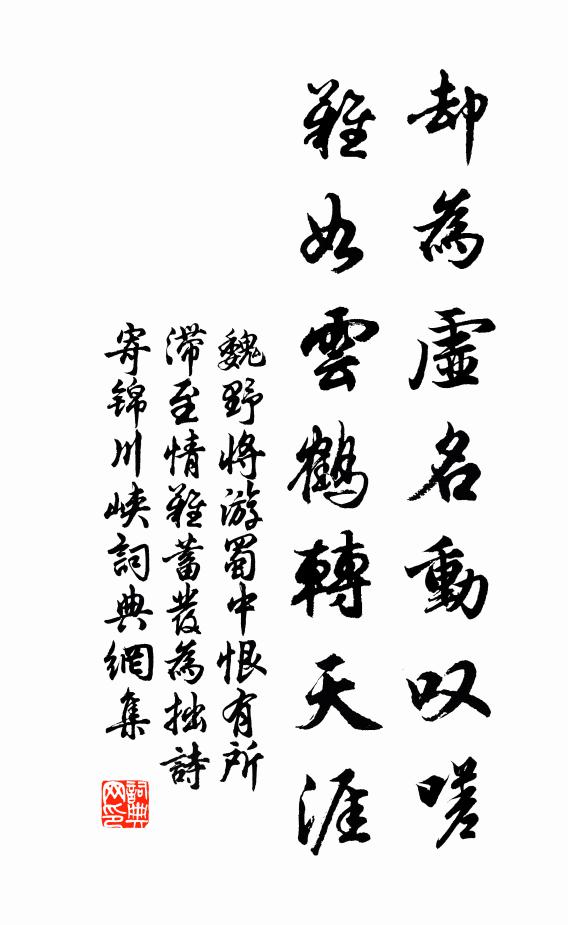 却為虛名動叹嗟
難如雲鶴轉天涯
魏野将游蜀中恨有所
滯至情難蓄發為拙詩
寄锦川峡詞典網集
詞典网印